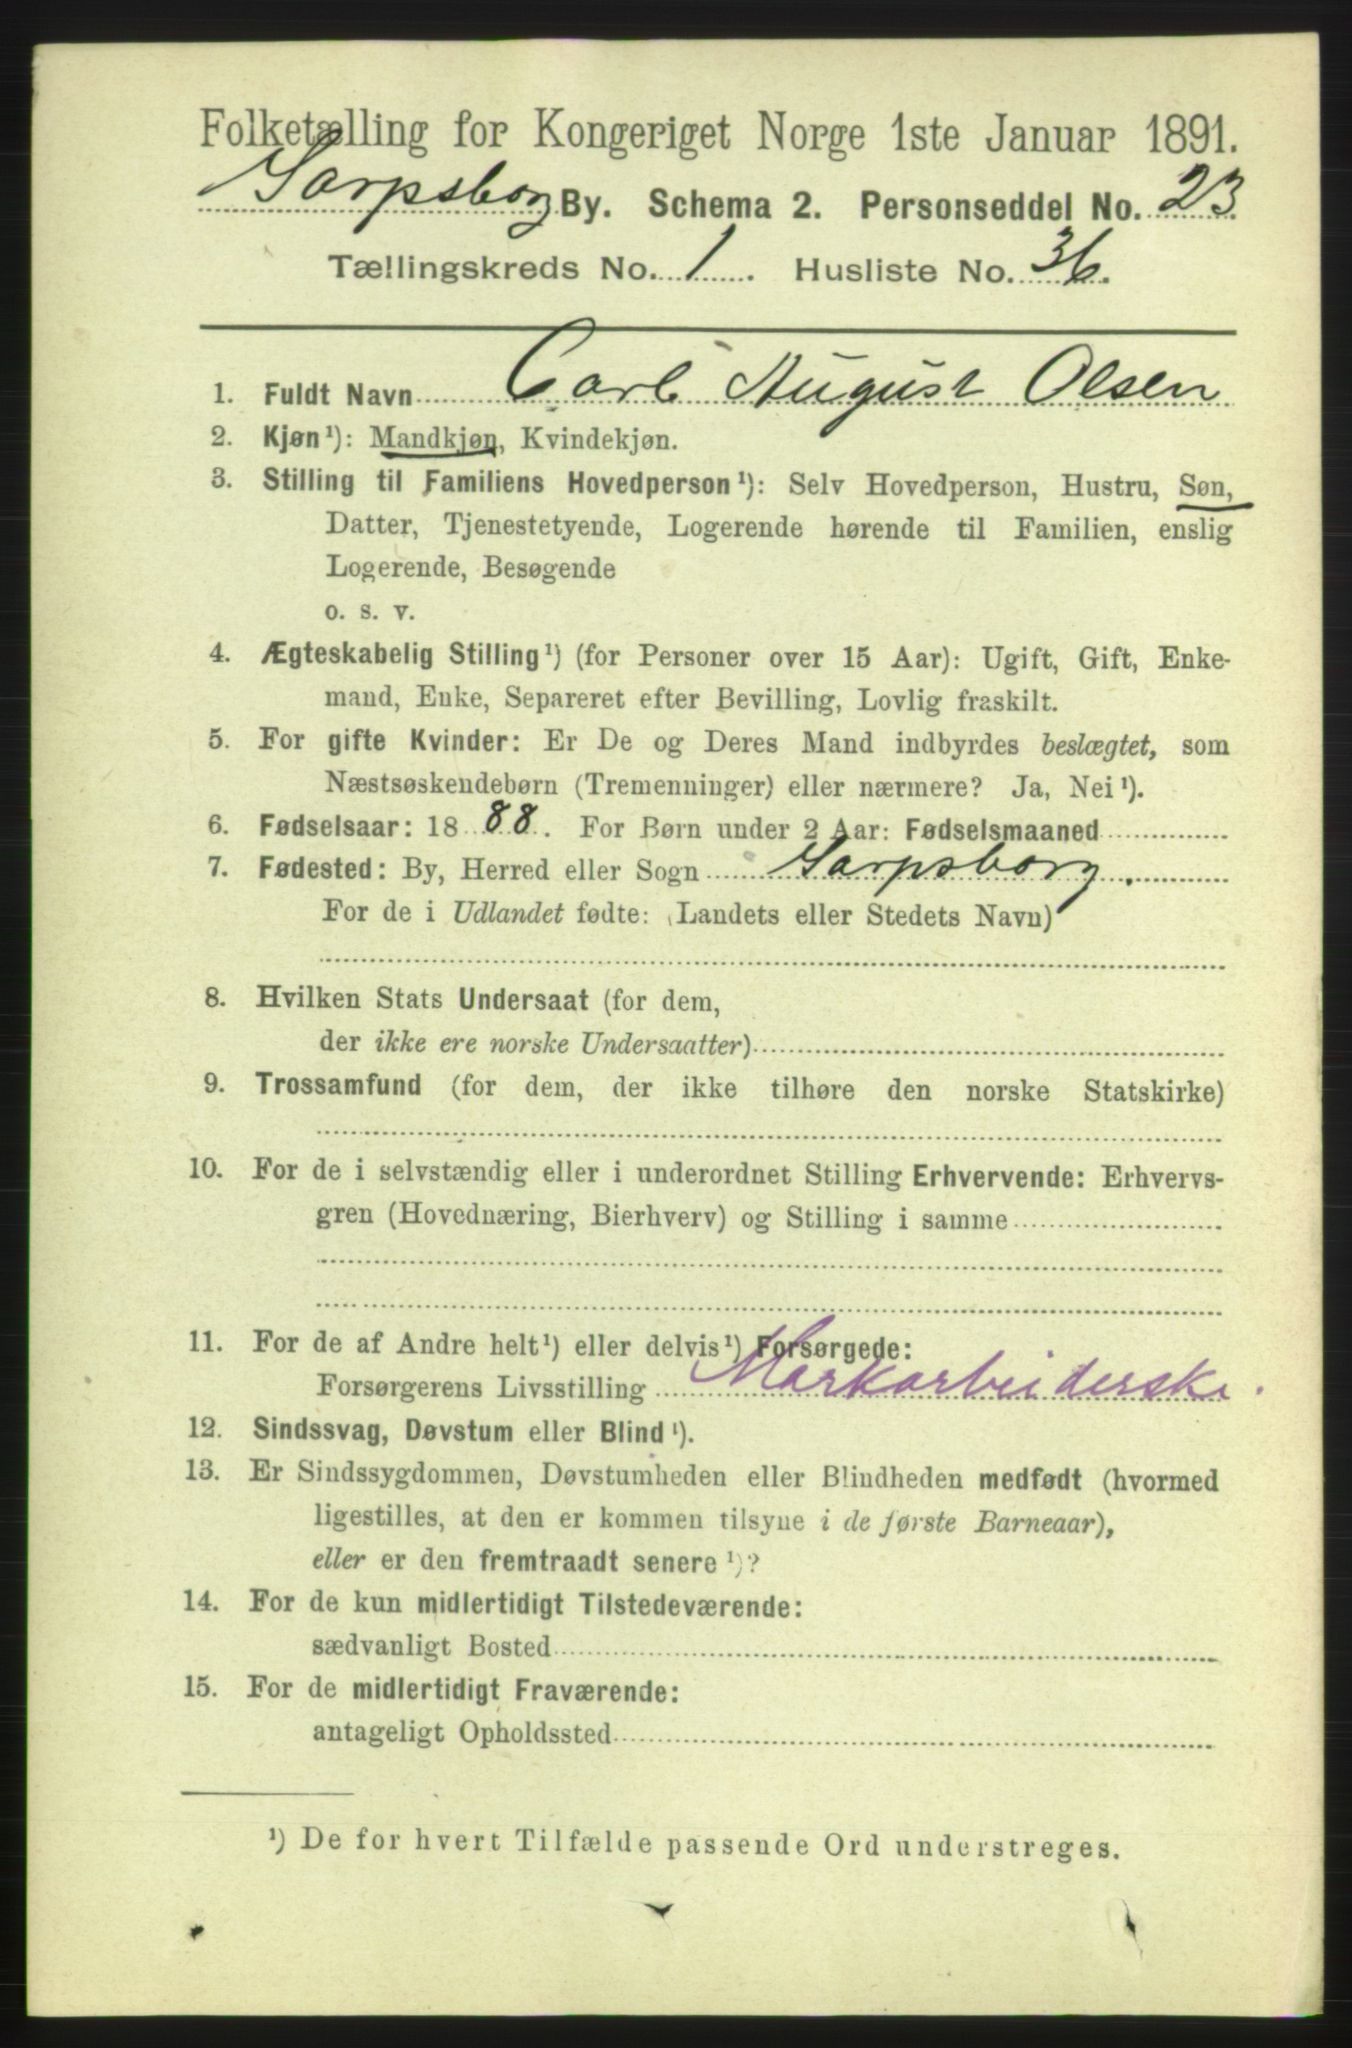 Folketælling for Kongeriget Norge 1ste Januar 1891.
Sarpsborg By. Schema 2. Personseddel No. 23
Tællingskreds No. 1. Husliste No. 36.
1. Fuldt Navn Carl August Olsen
2. Kjøn¹): Mandkjøn, Kvindekjøn.
3. Stilling til Familiens Hovedperson¹): Selv Hovedperson, Hustru, Søn,
Datter, Tjenestetyende, Logerende hørende til Familien, enslig
Logerende, Besøgende
o. s. v.
4. Ægteskabelig Stilling¹) (for Personer over 15 Aar): Ugift, Gift, Enke-
mand, Enke, Separeret efter Bevilling, Lovlig fraskilt.
5. For gifte Kvinder: Er De og Deres Mand indbyrdes beslægtet, som
Næstsøskendebørn (Tremenninger) eller nærmere? Ja, Nei¹).
6. Fødselsaar: 1888. For Børn under 2 Aar: Fødselsmaaned
7. Fødested: By, Herred eller Sogn Sarpsborg.
For de i Udlandet fødte: (Landets eller Stedets Navn)
8. Hvilken Stats Undersaat (for dem,
der ikke ere norske Undersaatter)
9. Trossamfund (for dem, der ikke tilhøre den norske Statskirke)
10. For de i selvstændig eller i underordnet Stilling Erhvervende: Erhvervs-
gren (Hovednæring, Bierhverv) og Stilling i samme
11. For de af Andre helt¹) eller delvis¹) Forsørgede:
Forsørgerens Livsstilling Markarbeiderske.
12. Sindssvag, Døvstum eller Blind¹).
13. Er Sindssygdommen, Døvstumheden eller Blindheden medfødt (hvormed
ligestilles, at den er kommen tilsyne i de første Barneaar),
eller er den fremtraadt senere¹)?
14. For de kun midlertidigt Tilstedeværende:
sædvanligt Bosted
15. For de midlertidigt Fraværende:
antageligt Opholdssted
¹) De for hvert Tilfælde passende Ord understreges.